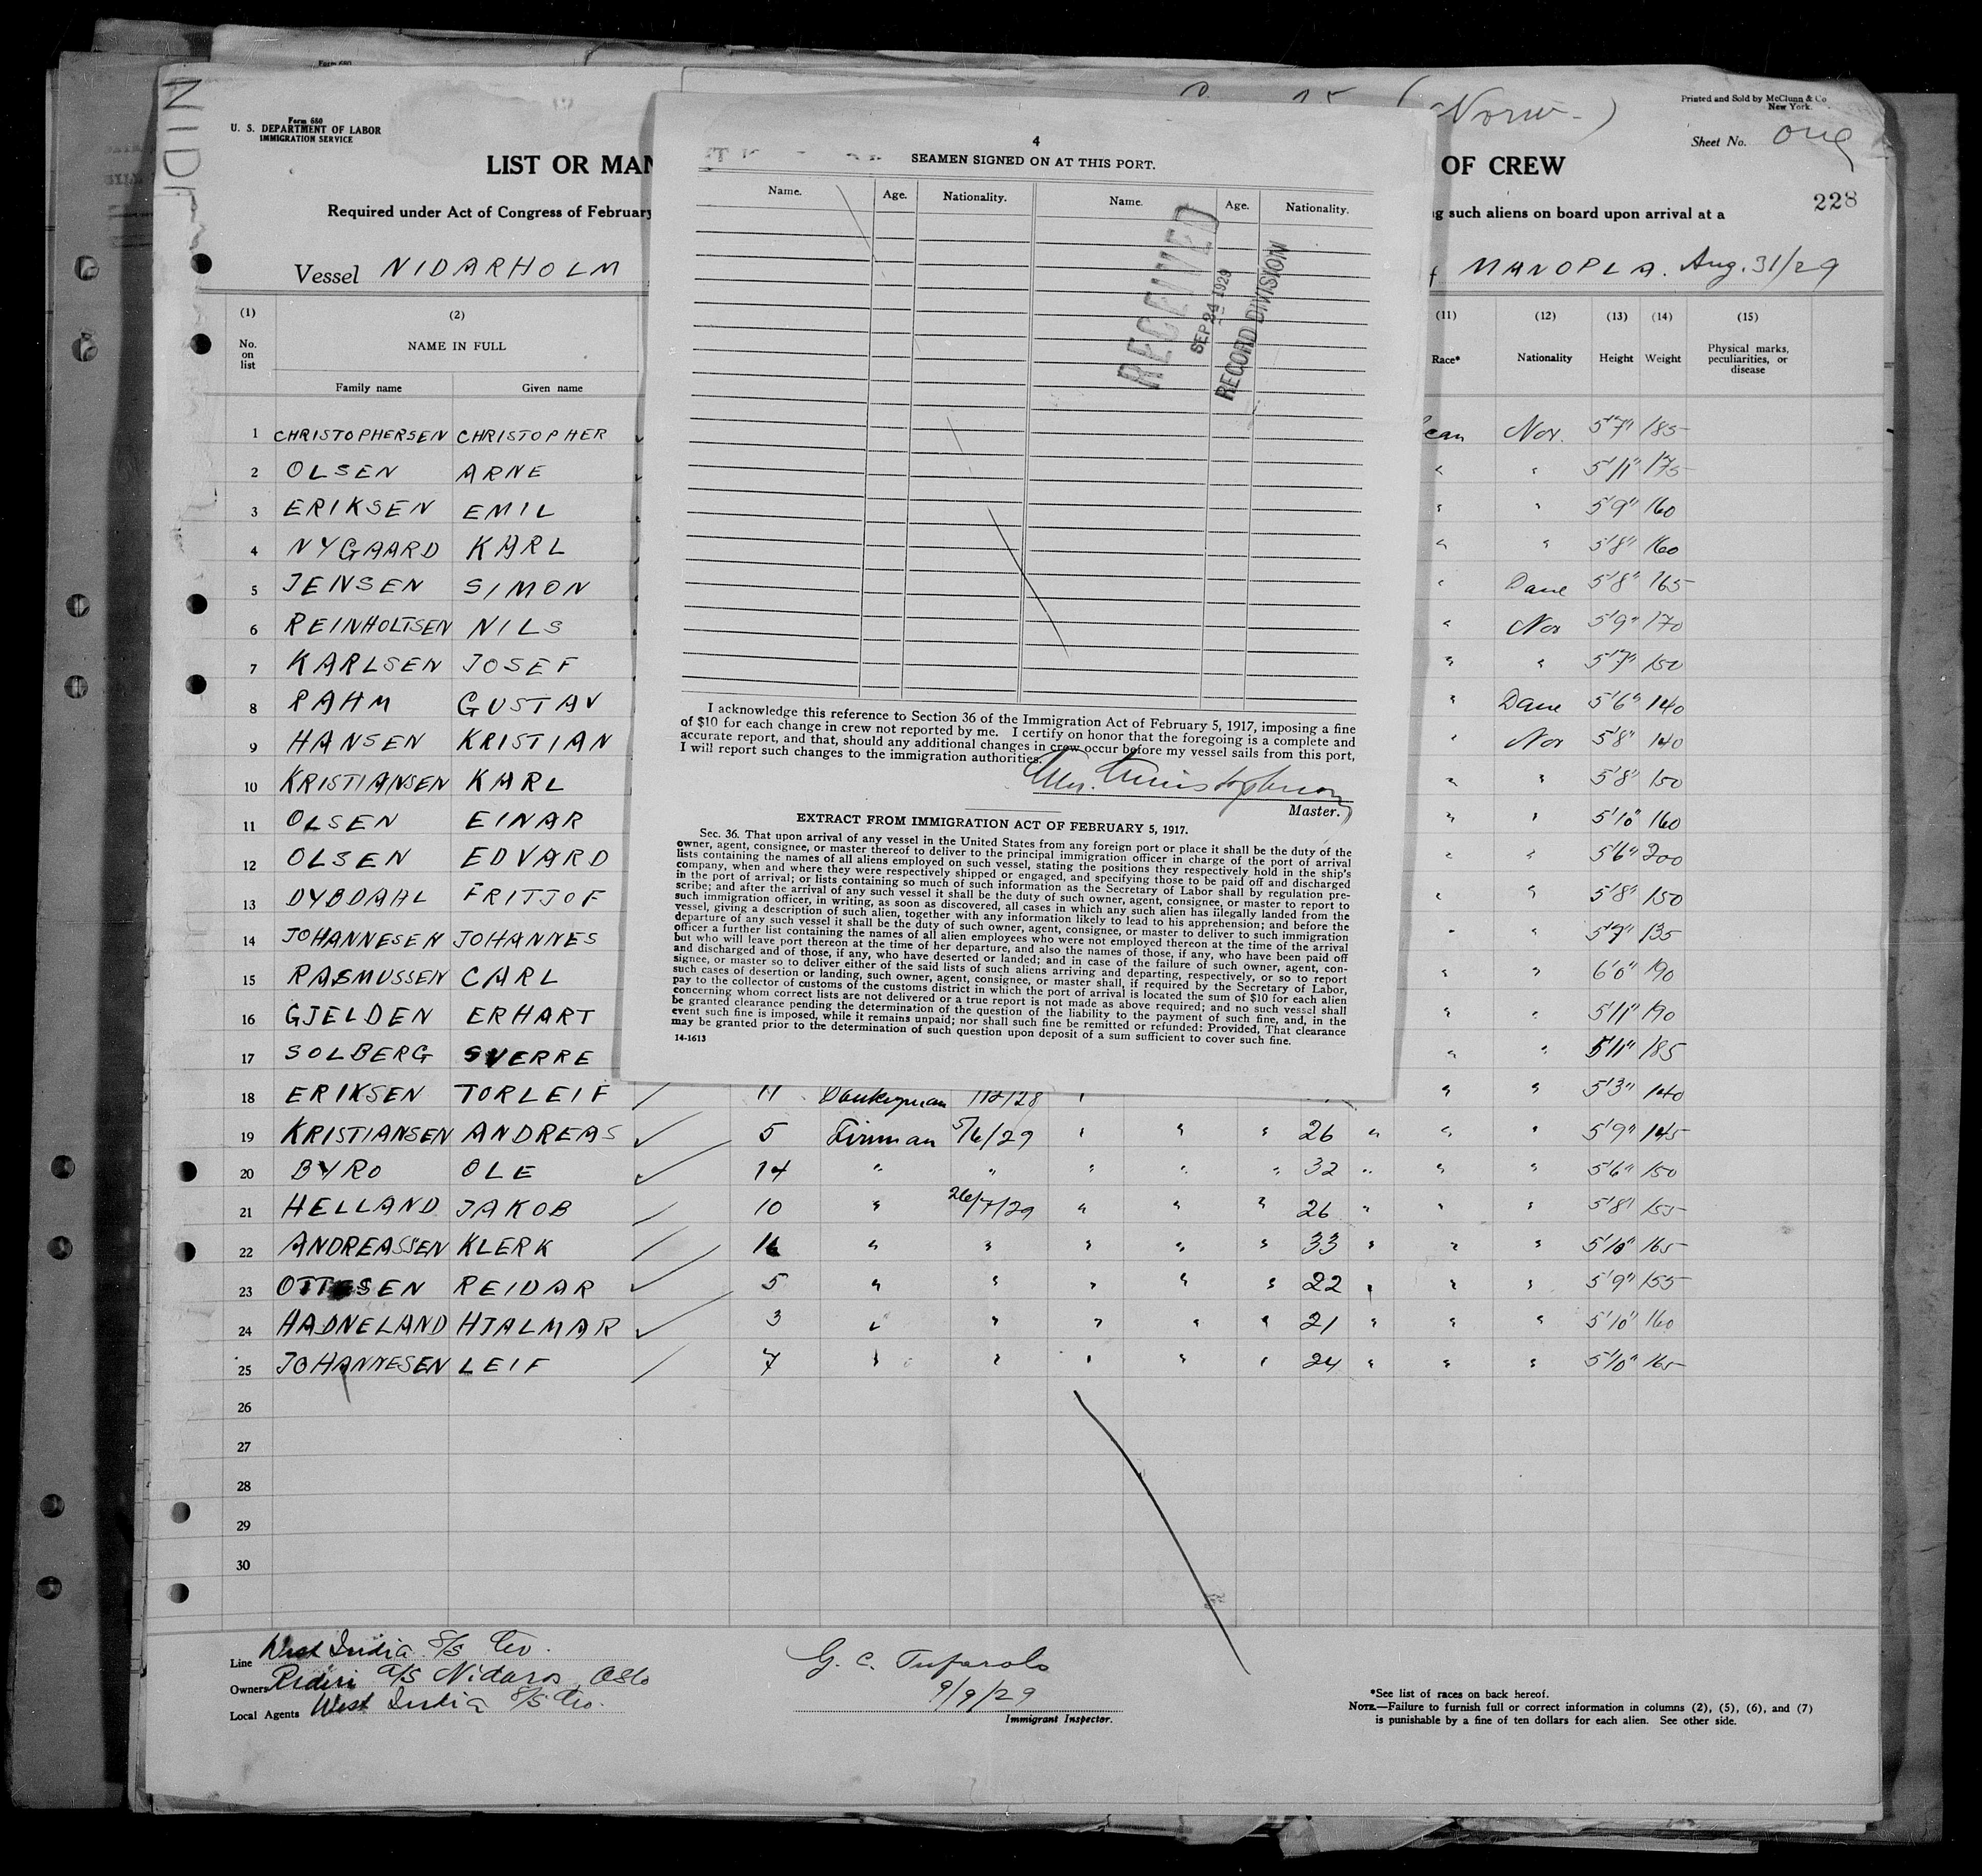 NIDA
Form 680
U. S. DEPARTMENT OF LABOR
IMMIGRATION SERVICE
(Norw-)
Printed and Sold by McClunn & Co
New York.
Sheet No. one
LIST OR MAN
OF CREW
228
Required under Act of Congress of February
g such aliens on board upon arrival at a
Vessel NIDARHOLM
f MANOPLA. Aug. 31/29
(1) (2) (11) (12) (13) (14) (15)
No. on list NAME IN FULL Race* Nationality Height Weight Physical marks, peculiarities, or disease
Family name Given name
1 CHRISTOPHERSEN CHRISTOPHER can Nor. 5'7" 185
2 OLSEN ARNE " " 5'11" 175
3 ERIKSEN EMIL " " 5'9" 160
4 NYGAARD KARL " " 5'8" 160
5 JENSEN SIMON " Dane 5'8" 165
6 REINHOLTSEN NILS " Nor 5'9" 170
7 KARLSEN JOSEF " " 5'7" 150
8 RAHM GUSTAV " Dane 5'6" 140
9 HANSEN KRISTIAN " Nor 5'8" 140
10 KRISTIANSEN KARL " " 5'8" 150
11 OLSEN EINAR " " 5'10" 160
12 OLSEN EDVARD " " 5'6" 200
13 DYBDAHL FRITJOF " " 5'8" 150
14 JOHANNESEN JOHANNES " " 5'7" 135
15 RASMUSSEN CARL " " 6'0" 190
16 GJELDEN ERHART " " 5'11" 190
17 SOLBERG SVERRE " " 5'11" 185
18 ERIKSEN TORLEIF 11 Donkeyman " " 5'3" 140
19 KRISTIANSEN ANDREAS 5 Firman 5/6/29 " " " 26 " " " 5'9" 145
20 BYRO OLE 14 " " " " " 32 " " " 5'6" 150
21 HELLAND JAKOB 10 " 26/7/29 " " " 26 " " " 5'8" 155
22 ANDREASSEN KLERK 16 " " " " " 33 " " " 5'10" 165
23 OTTESEN REIDAR 5 " " " " " 22 " " " 5'9" 155
24 HADNELAND HJALMAR 3 " " " " " 21 " " " 5'10" 160
25 JOHANNESEN LEIF 7 " " " " " 24 " " " 5'10" 165
26
27
28
29
30
Line West India S/S Co.
Owners Rederi A/S Nidaros, Oslo
Local Agents West India S/S Co.
G. C. Tufarolo
9/9/29
Immigrant Inspector.
*See list of races on back hereof.
NOTE.—Failure to furnish full or correct information in columns (2), (5), (6), and (7)
is punishable by a fine of ten dollars for each alien. See other side.
4
SEAMEN SIGNED ON AT THIS PORT.
Name. Age. Nationality. Name. Age. Nationality.
RECEIVED
SEP 24 1929
RECORD DIVISION
I acknowledge this reference to Section 36 of the Immigration Act of February 5, 1917, imposing a fine
of $10 for each change in crew not reported by me. I certify on honor that the foregoing is a complete and
accurate report, and that, should any additional changes in crew occur before my vessel sails from this port,
I will report such changes to the immigration authorities.
Chr. Christophersen
Master.
EXTRACT FROM IMMIGRATION ACT OF FEBRUARY 5, 1917.
Sec. 36. That upon arrival of any vessel in the United States from any foreign port or place it shall be the duty of the
owner, agent, consignee, or master thereof to deliver to the principal immigration officer in charge of the port of arrival
lists containing the names of all aliens employed on such vessel, stating the positions they respectively hold in the ship's
company, when and where they were respectively shipped or engaged, and specifying those to be paid off and discharged
in the port of arrival; or lists containing so much of such information as the Secretary of Labor shall by regulation pre-
scribe; and after the arrival of any such vessel it shall be the duty of such owner, agent, consignee, or master to report to
such immigration officer, in writing, as soon as discovered, all cases in which any such alien has illegally landed from the
vessel, giving a description of such alien, together with any information likely to lead to his apprehension; and before the
departure of any such vessel it shall be the duty of such owner, agent, consignee, or master to deliver to such immigration
officer a further list containing the names of all alien employees who were not employed thereon at the time of the arrival
but who will leave port thereon at the time of her departure, and also the names of those, if any, who have been paid off
and discharged and of those, if any, who have deserted or landed; and in case of the failure of such owner, agent, con-
signee, or master so to deliver either of the said lists of such aliens arriving and departing, respectively, or so to report
such cases of desertion or landing, such owner, agent, consignee, or master shall, if required by the Secretary of Labor,
pay to the collector of customs of the customs district in which the port of arrival is located the sum of $10 for each alien
concerning whom correct lists are not delivered or a true report is not made as above required; and no such vessel shall
be granted clearance pending the determination of the question of the liability to the payment of such fine, and, in the
event such fine is imposed, while it remains unpaid; nor shall such fine be remitted or refunded: Provided, That clearance
may be granted prior to the determination of such question upon deposit of a sum sufficient to cover such fine.
14-1613